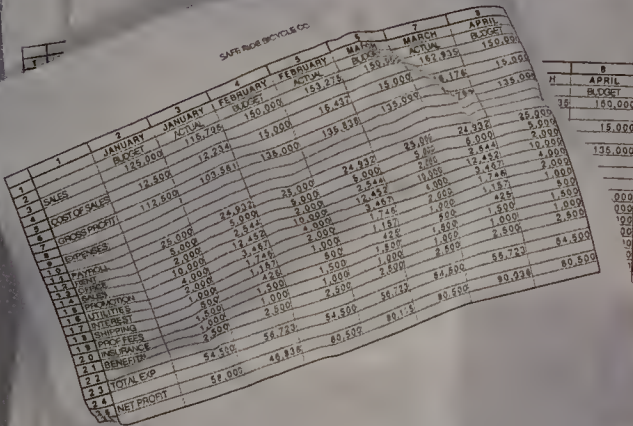 SAFE RIDE BICYCLE CO.
1 2 3 4 5 6 7 8
JANUARY JANUARY FEBRUARY FEBRUARY MARCH MARCH APRIL
BUDGET ACTUAL BUDGET ACTUAL BUDGET ACTUAL BUDGET
SALES 125,000 115,795 150,000 153,275 150,000 162,935 150,000
COST OF SALES 12,500 12,234 15,000 15,437 15,000 15,000
GROSS PROFIT 112,500 103,561 135,000 135,838 135,000 135,000
EXPENSES
PAYROLL 25,000 24,932 25,000 24,932 25,000 24,932 25,000
RENT 5,000 5,000 5,000 5,000 5,000 5,000 5,000
OFFICE 2,000 2,544 2,000 2,544 2,000 2,544 2,000
SALES 10,000 12,452 10,000 12,452 10,000 12,452 10,000
PROMOTION 4,000 3,467 4,000 3,467 4,000 3,467 4,000
UTILITIES 2,000 1,746 2,000 1,746 2,000 1,746 2,000
INTEREST 1,000 1,157 1,000 1,157 1,000 1,157 1,000
SHIPPING 500 425 500 425 500 425 500
PROF FEES 1,500 1,500 1,500 1,500 1,500 1,500 1,500
INSURANCE 1,000 1,000 1,000 1,000 1,000 1,000 1,000
BENEFITS 2,500 2,500 2,500 2,500 2,500 2,500 2,500
TOTAL EXP 54,500 56,723 54,500 56,723 54,500 55,723 54,500
NET PROFIT 58,000 46,838 80,500 80,115 80,500 90,936 80,500
8
APRIL
BUDGET
150,000
15,000
135,000